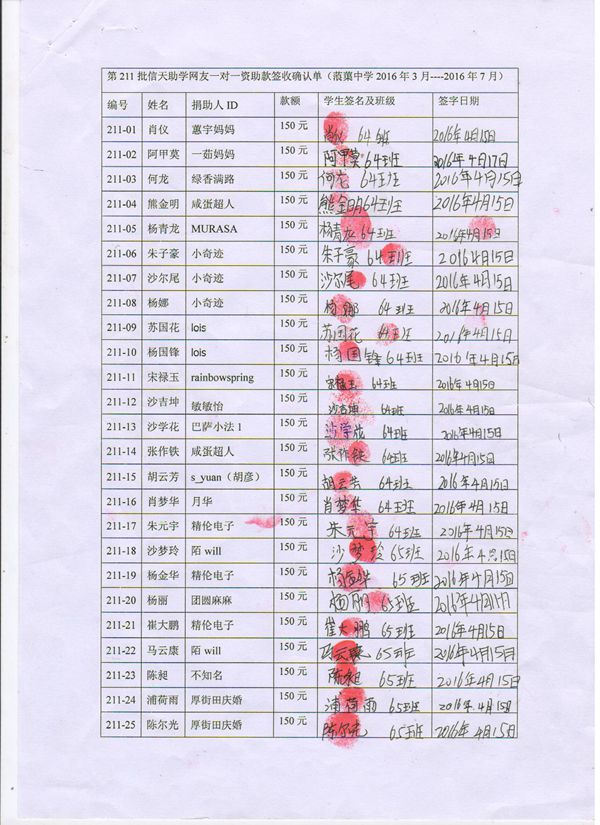 第 211 批信天助学网友一对一资助款签收确认单（蒗蕖中学 2016 年 3 月----2016 年 7 月）
编号 姓名 捐助人 ID 款额 学生签名及班级 签字日期
211-01 肖仪 蕙宇妈妈 150 元 肖仪 64班 2016年4月15日
211-02 阿甲莫 一茹妈妈 150 元 阿甲莫 64班 2016年4月17日
211-03 何龙 绿香满路 150 元 何龙 64班 2016年4月15日
211-04 熊金明 咸蛋超人 150 元 熊金明 64班 2016年4月15日
211-05 杨青龙 MURASA 150 元 杨青龙 64班 2016年4月15日
211-06 朱子豪 小奇迹 150 元 朱子豪 64班 2016年4月15日
211-07 沙尔尾 小奇迹 150 元 沙尔尾 64班 2016年4月15日
211-08 杨娜 小奇迹 150 元 杨娜 64班 2016年4月15日
211-09 苏国花 lois 150 元 苏国花 64班 2016年4月15日
211-10 杨国锋 lois 150 元 杨国锋 64班 2016年4月15日
211-11 宋禄玉 rainbowspring 150 元 宋禄玉 64班 2016年4月15日
211-12 沙吉坤 敏敏怡 150 元 沙吉坤 64班 2016年4月15日
211-13 沙学花 巴萨小法 1 150 元 沙学花 64班 2016年4月15日
211-14 张作铁 咸蛋超人 150 元 张作铁 64班 2016年4月15日
211-15 胡云芳 s_yuan（胡彦） 150 元 胡云芳 64班 2016年4月15日
211-16 肖梦华 月华 150 元 肖梦华 64班 2016年4月15日
211-17 朱元宇 精伦电子 150 元 朱元宇 64班 2016年4月15日
211-18 沙梦玲 陌 will 150 元 沙梦玲 65班 2016年4月15日
211-19 杨金华 精伦电子 150 元 杨金华 65班 2016年4月15日
211-20 杨丽 团圆麻麻 150 元 杨丽 65班 2016年4月15日
211-21 崔大鹏 精伦电子 150 元 崔大鹏 65班 2016年4月15日
211-22 马云康 陌 will 150 元 马云康 65班 2016年4月15日
211-23 陈昶 不知名 150 元 陈昶 65班 2016年4月15日
211-24 浦荷雨 厚街田庆婚 150 元 浦荷雨 65班 2016年4月15日
211-25 陈尔光 厚街田庆婚 150 元 陈尔光 65班 2016年4月15日